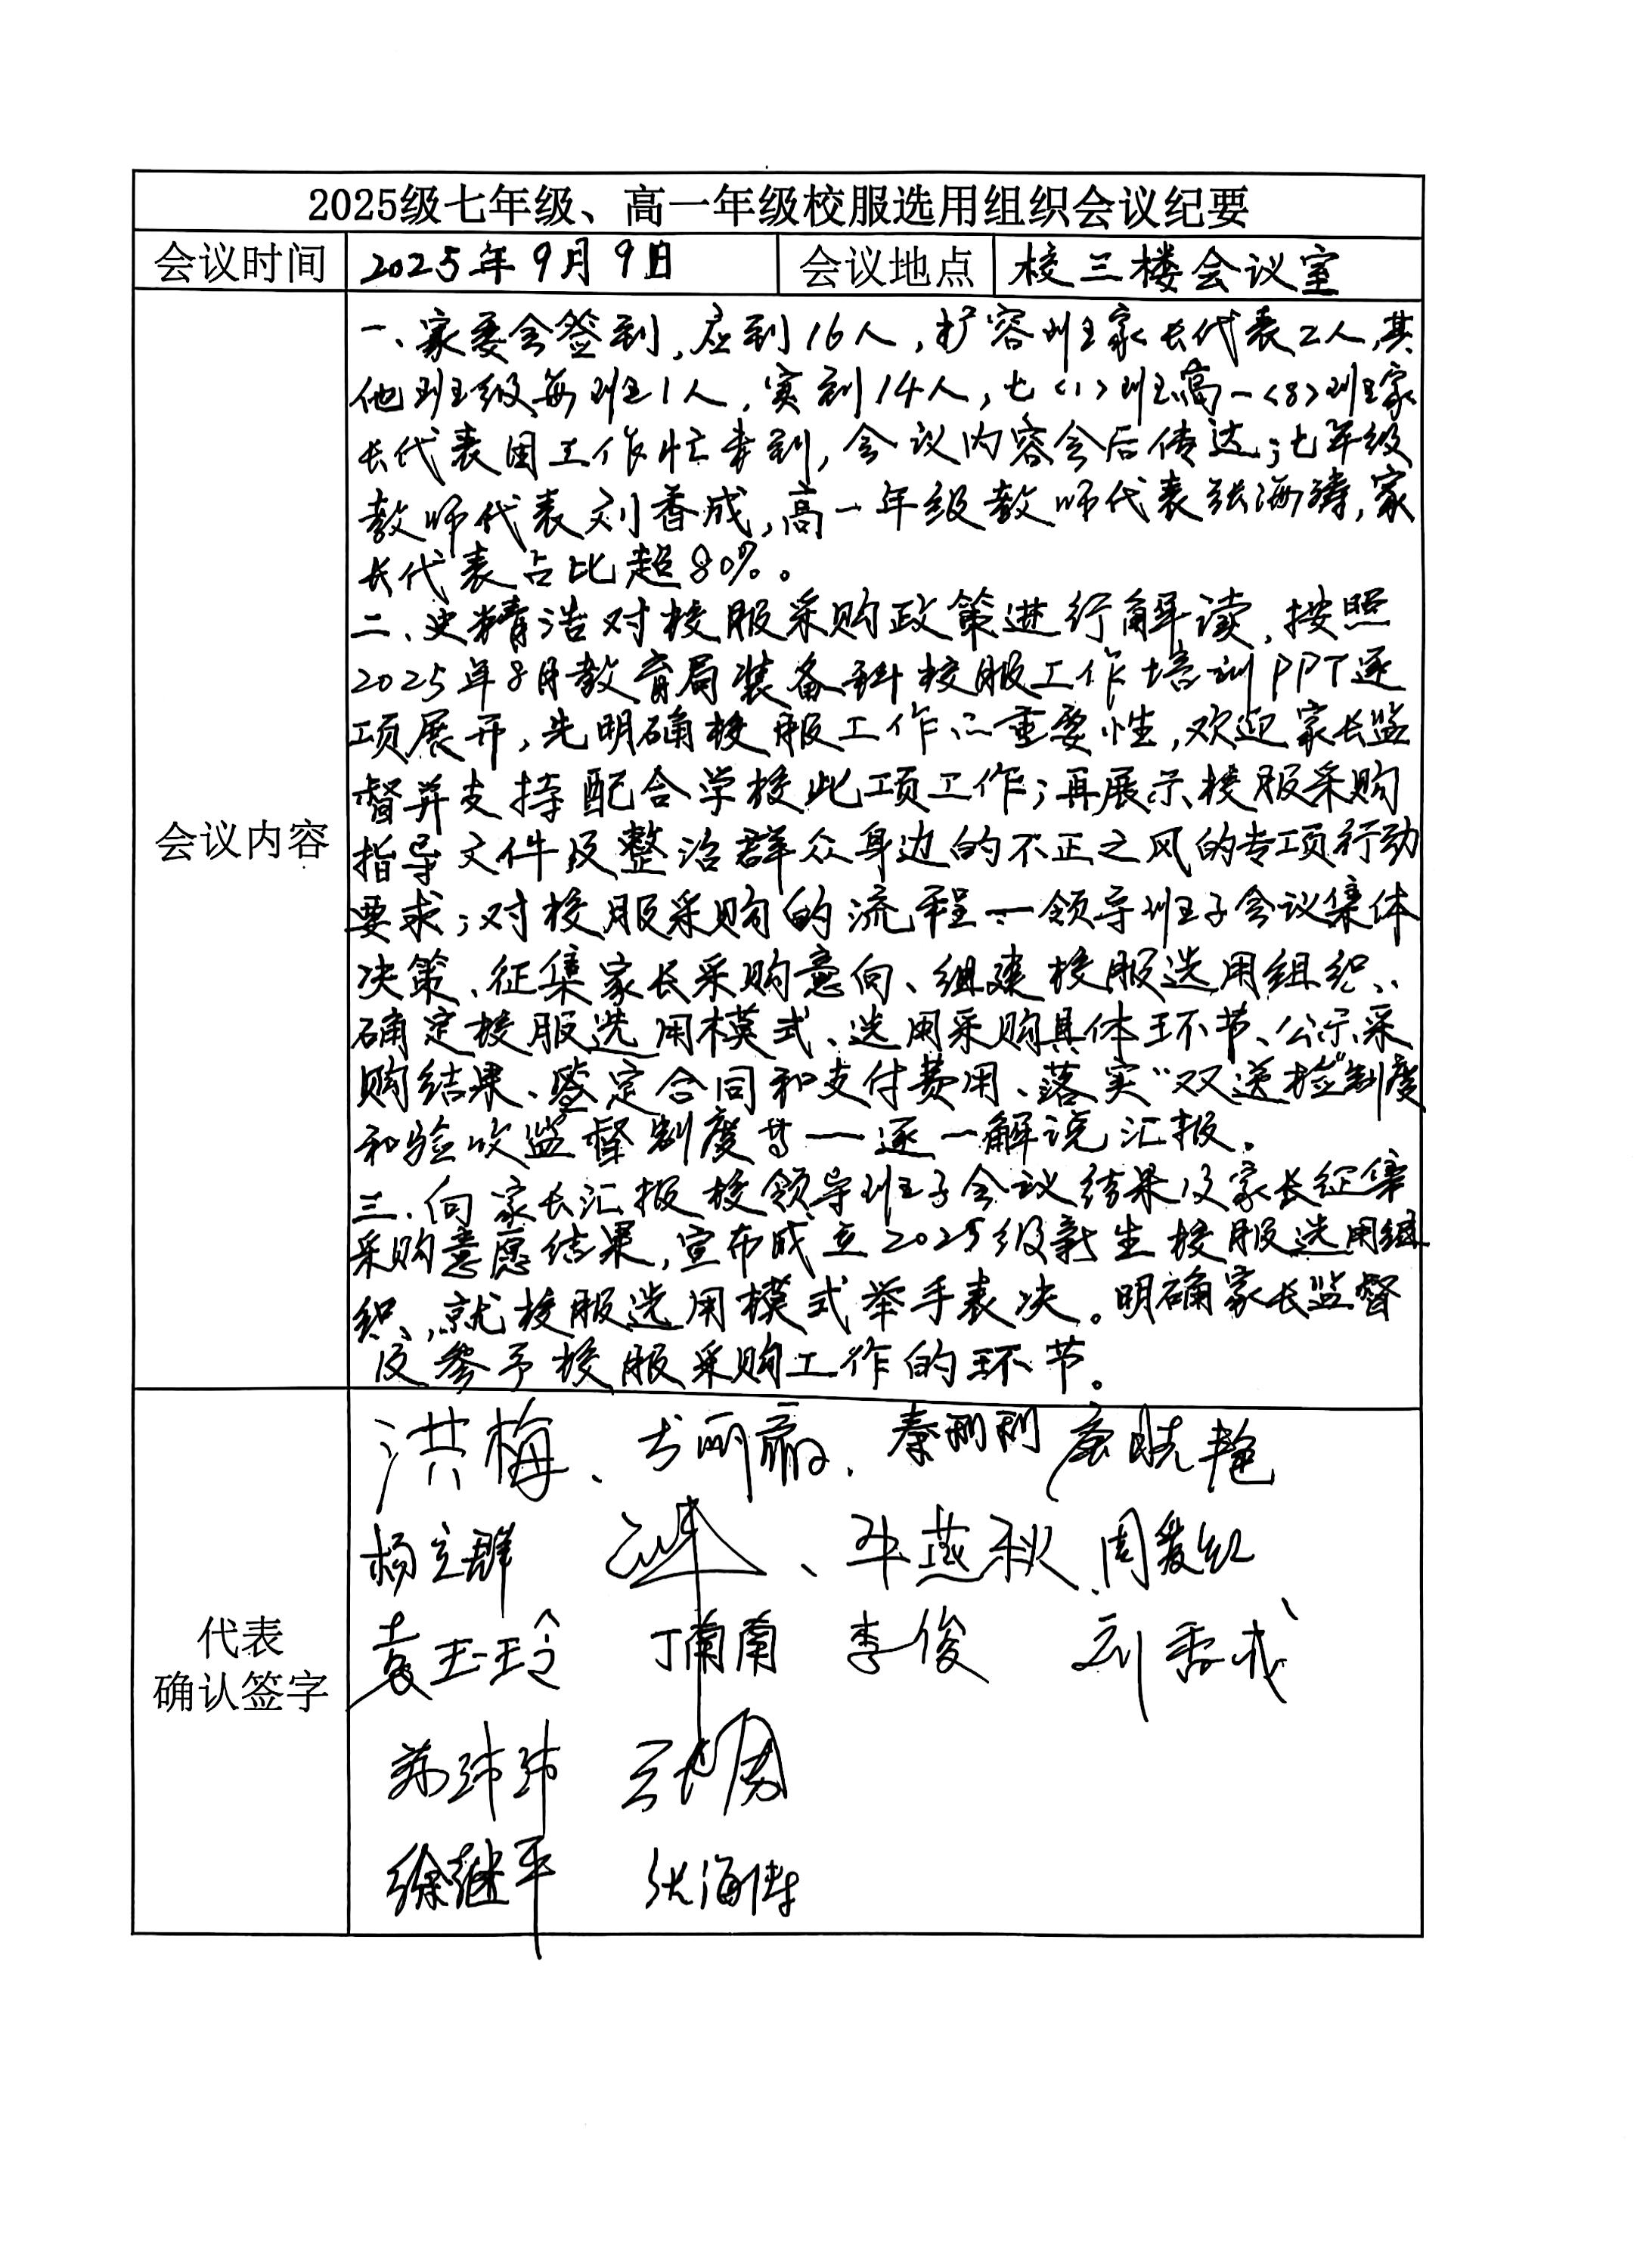 2025级七年级、高一年级校服选用组织会议纪要
会议时间 2025年9月9日 会议地点 校三楼会议室
会议内容
一、家委会签到,应到16人,扩容班家长代表2人,其
他班级每班1人,实到14人,七<1>班、高一<8>班家
长代表因工作忙未到,会议内容会后传达;七年级
教师代表刘香成,高一年级教师代表张海涛,家
长代表占比超80%。
二、史精浩对校服采购政策进行解读,按照
2025年8月教育局装备科校服工作培训PPT逐
项展开,先明确校服工作的重要性,欢迎家长监
督并支持配合学校此项工作;再展示校服采购
指导文件及整治群众身边的不正之风的专项行动
要求;对校服采购的流程——领导班子会议集体
决策、征集家长采购意向、组建校服选用组织、
确定校服选用模式、选用采购具体环节、公示采
购结果、鉴定合同和支付费用、落实“双送检”制度
和验收监督制度等——逐一解说汇报。
三、向家长汇报校领导班子会议结果及家长征集
采购意愿结果,宣布成立2025级新生校服选用组
织,就校服选用模式举手表决。明确家长监督
及参予校服采购工作的环节。
代表
确认签字
洪梅、 秦利利 唐晓艳
杨立群 、牛燕秋 周爱红
袁玉玲 丁南南 李俊 刘香成
苏玮玮
徐继平 张海涛